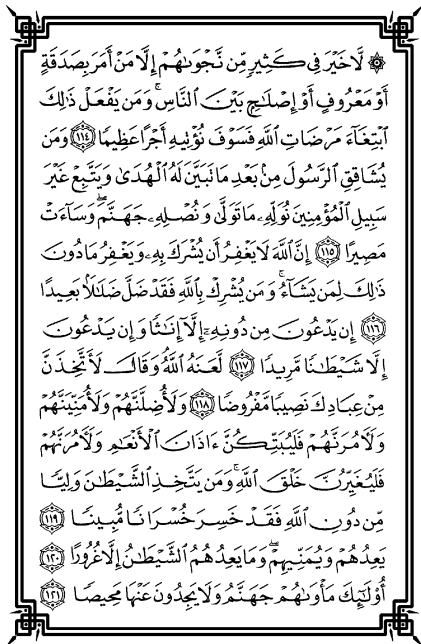 ۞ لَّا خَيْرَ فِى كَثِيرٍ مِّن نَّجْوَىٰهُمْ إِلَّا مَنْ أَمَرَ بِصَدَقَةٍ
أَوْ مَعْرُوفٍ أَوْ إِصْلَٰحٍۭ بَيْنَ ٱلنَّاسِ ۚ وَمَن يَفْعَلْ ذَٰلِكَ
ٱبْتِغَآءَ مَرْضَاتِ ٱللَّهِ فَسَوْفَ نُؤْتِيهِ أَجْرًا عَظِيمًا ١١٤ وَمَن
يُشَاقِقِ ٱلرَّسُولَ مِنۢ بَعْدِ مَا تَبَيَّنَ لَهُ ٱلْهُدَىٰ وَيَتَّبِعْ غَيْرَ
سَبِيلِ ٱلْمُؤْمِنِينَ نُوَلِّهِۦ مَا تَوَلَّىٰ وَنُصْلِهِۦ جَهَنَّمَ ۖ وَسَآءَتْ
مَصِيرًا ١١٥ إِنَّ ٱللَّهَ لَا يَغْفِرُ أَن يُشْرَكَ بِهِۦ وَيَغْفِرُ مَا دُونَ
ذَٰلِكَ لِمَن يَشَآءُ ۚ وَمَن يُشْرِكْ بِٱللَّهِ فَقَدْ ضَلَّ ضَلَٰلًۢا بَعِيدًا
١١٦ إِن يَدْعُونَ مِن دُونِهِۦٓ إِلَّآ إِنَٰثًا وَإِن يَدْعُونَ
إِلَّا شَيْطَٰنًا مَّرِيدًا ١١٧ لَّعَنَهُ ٱللَّهُ ۘ وَقَالَ لَأَتَّخِذَنَّ
مِنْ عِبَادِكَ نَصِيبًا مَّفْرُوضًا ١١٨ وَلَأُضِلَّنَّهُمْ وَلَأُمَنِّيَنَّهُمْ
وَلَءَامُرَنَّهُمْ فَلَيُبَتِّكُنَّ ءَاذَانَ ٱلْأَنْعَٰمِ وَلَءَامُرَنَّهُمْ
فَلَيُغَيِّرُنَّ خَلْقَ ٱللَّهِ ۚ وَمَن يَتَّخِذِ ٱلشَّيْطَٰنَ وَلِيًّا
مِّن دُونِ ٱللَّهِ فَقَدْ خَسِرَ خُسْرَانًا مُّبِينًا ١١٩
يَعِدُهُمْ وَيُمَنِّيهِمْ ۖ وَمَا يَعِدُهُمُ ٱلشَّيْطَٰنُ إِلَّا غُرُورًا ١٢٠
أُو۟لَٰٓئِكَ مَأْوَىٰهُمْ جَهَنَّمُ وَلَا يَجِدُونَ عَنْهَا مَحِيصًا ١٢١